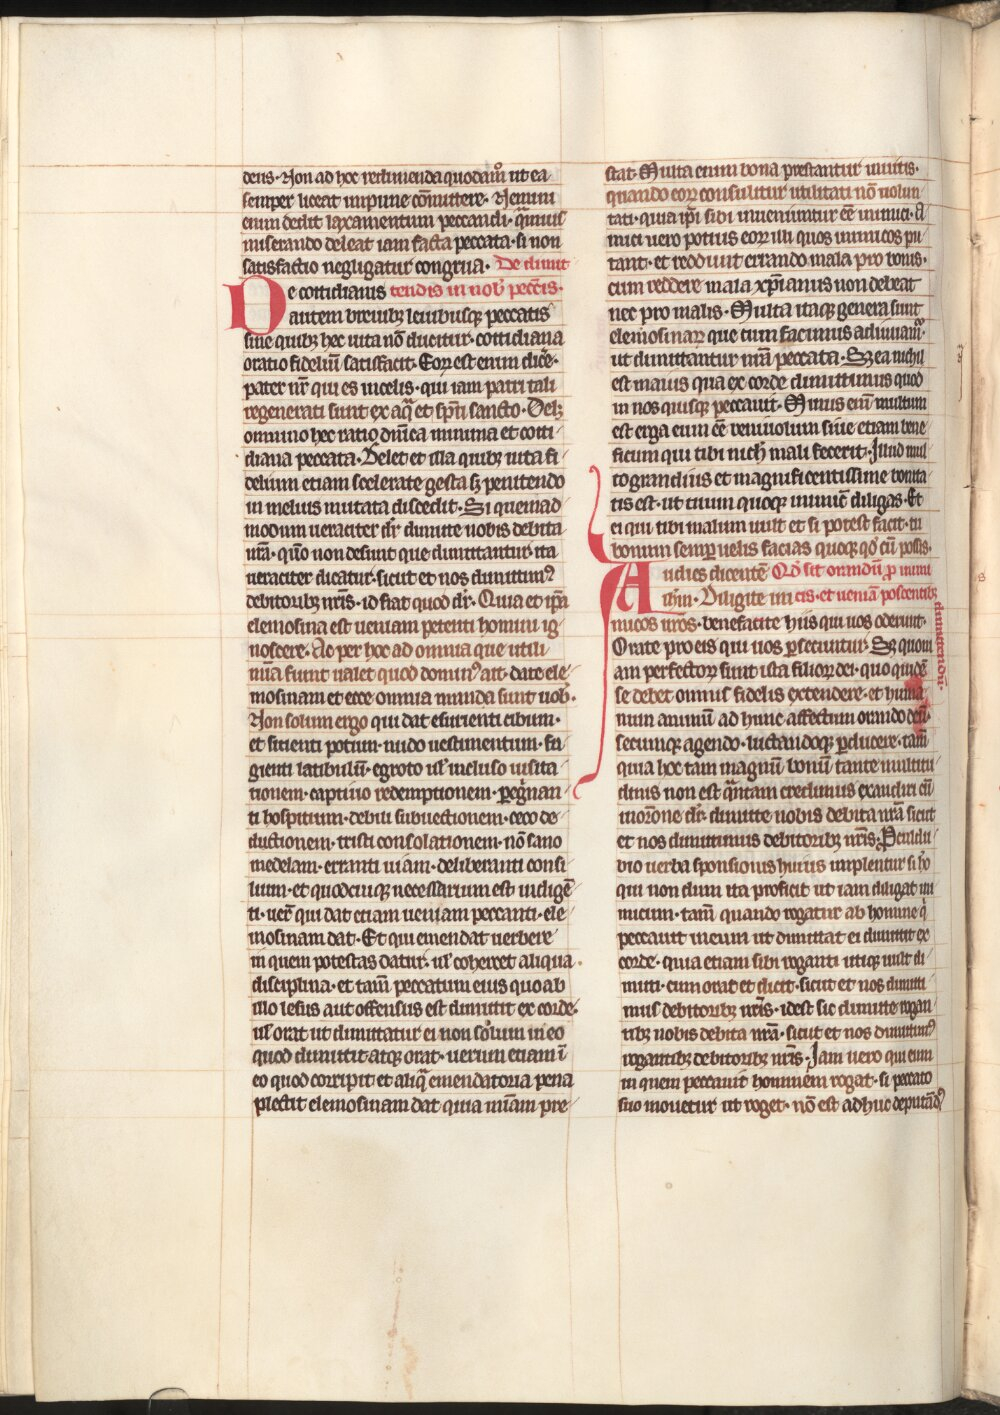 deus. Non ad hoc redimenda quodāmͦ ut ea
semper liceat impune cōmittere. Nemini
enim dedit laxamentum peccandi. qͣmuis
miserando deleat iam facta peccata. si non
satisfactio negligatur congrua. De dimit
De cottidianis tendis in nob̾ pecc̄is.
autem breuibꝫ leuibusqꝫ peccatis
sine quibꝫ hec uita nō ducitur. cottidiana
oratio fideliū satisfacit. Eoꝝ est enim dic̄e.
pater nr̄ qui es in celis. qui iam patri tali
regenerati sunt ex aqͣ et sp̄u sancto. Delꝫ
omnino hec ratio dn̄ica minima et cotti
diana peccata. Delet et illa quibꝫ uita fi
delium etiam scelerate gesta sꝫ penitendo
in melius mutata discedit. Si quemad
modum ueraciter dr̄ dimitte nobis debita
nr̄a. qm̄o non desunt que dimittantur. ita
ueraciter dicatur. sicut et nos dimittimꝰ
debitoribꝫ nr̄is. id fiat quod dr̄. Quia et ip̄a
elemosina est ueniam petenti homini ig
noscere. Ac per hoc ad omnia que utili
mīa fiunt ualet quod dominꝰ ait. date ele
mosinam et ecce omnia munda sunt uob̾.
Non solum ergo qui dat esurienti cibum.
et sitienti potum. nudo uestimentum. fu
gienti latibulū. egroto ul̾ incluso uisita
tionem. captiuo redemptionem. peregͥnan
ti hospitium. debili subuectionem. ceco de
ductionem. tristi consolationem. nō sano
medelam. erranti uiam. deliberanti consi
lium. et quodcuiqꝫ necessarium est indigē
ti. uer̄ qui dat etiam ueniam peccanti. ele
mosinam dat. Et qui emendat uerbere
in quem potestas datur. ul̾ cohercet aliqua
disciplina. et tam̄ peccatum eius quo ab
illo lesus aut offensus est dimittit ex corde.
ul̾ orat ut dimittatur ei non solum in eo
quod dimittit atqꝫ orat. uerum etiam ī
eo quod corripit et aliqͣ emendatoria pena
plectit elemosinam dat quia mīam pre
stat. Multa enim bona prestantur inuitis.
quando eoꝝ consulitur utilitati nō uolun
tati. quia ip̄i sibi inueniuntur ēē inimici. A
mici uero potius eoꝝ illi quos inimicos pu
tant. et reddunt errando mala pro bonis.
cum reddere mala xp̄ianus non debeat
nec pro malis. Multa itaqꝫ genera sunt
elemosinaꝝ que cum facimus adiuuamͬ.
ut dimittantur nr̄a peccata. Sꝫ ea nichil
est maius qua ex corde dimittimus quod
in nos quisqꝫ peccauit. Minus eni̅ multum
est erga eum ēē beniuolum siue etiam bene
ficum qui tibi nich̾ mali fecerit. Illud mul
to grandius et magnificentissime bonita
tis est. ut tuum quoqꝫ inimic̄ diligas. Et
ei qui tibi malum uult et si potest facit. tu
bonum semp̱ uelis facias quoqꝫ qd̾ cū possis.
Audies dicentē Qd̾ sit orandū ꝓ inimi
ih̄m. Diligite ini cis. et ueniā poscentibꝫ
dimittendū.
micos ur̄os. benefacite hiis qui uos oderunt.
Orate pro eis qui uos ꝑsecuntur. Sꝫ quoni
am perfectoꝝ sunt ista filioꝝ dei. quo quidē
se debet omnis fidelis extendere. et huma
num animū ad hunc affectum orando deū.
secumqꝫ agendo. luctandoqꝫ ꝑducere. tam̄
quia hoc tam magnū bonū tante multitu
dinis non est qͣntam credimus exaudiri cū
in or̄one dr̄. dimitte nobis debita nr̄a sicut
et nos dimittimus debitoribꝫ nr̄is. Proculdu
bio uerba sponsionis huius implentur si hͦ
qui non dum ita proficit ut iam diligat ini
micum. tam̄ quando rogatur ab homine qͥ
peccauit in eum ut dimittat ei dimittit ex
corde. quia etiam sibi roganti utiqꝫ uult di
mitti. cum orat et dicit. sicut et nos dimitti
mus debitoribꝫ nr̄is. idest sic dimitte rogan
tibꝫ nobis debita nr̄a. sicut et nos dimittimꝰ
rogantibꝫ debitoribꝫ nr̄is. Iam uero qui eum
in quem peccauit hominem rogat. si peccato
suo mouetur ut roget. nō est adhuc deputādꝰ